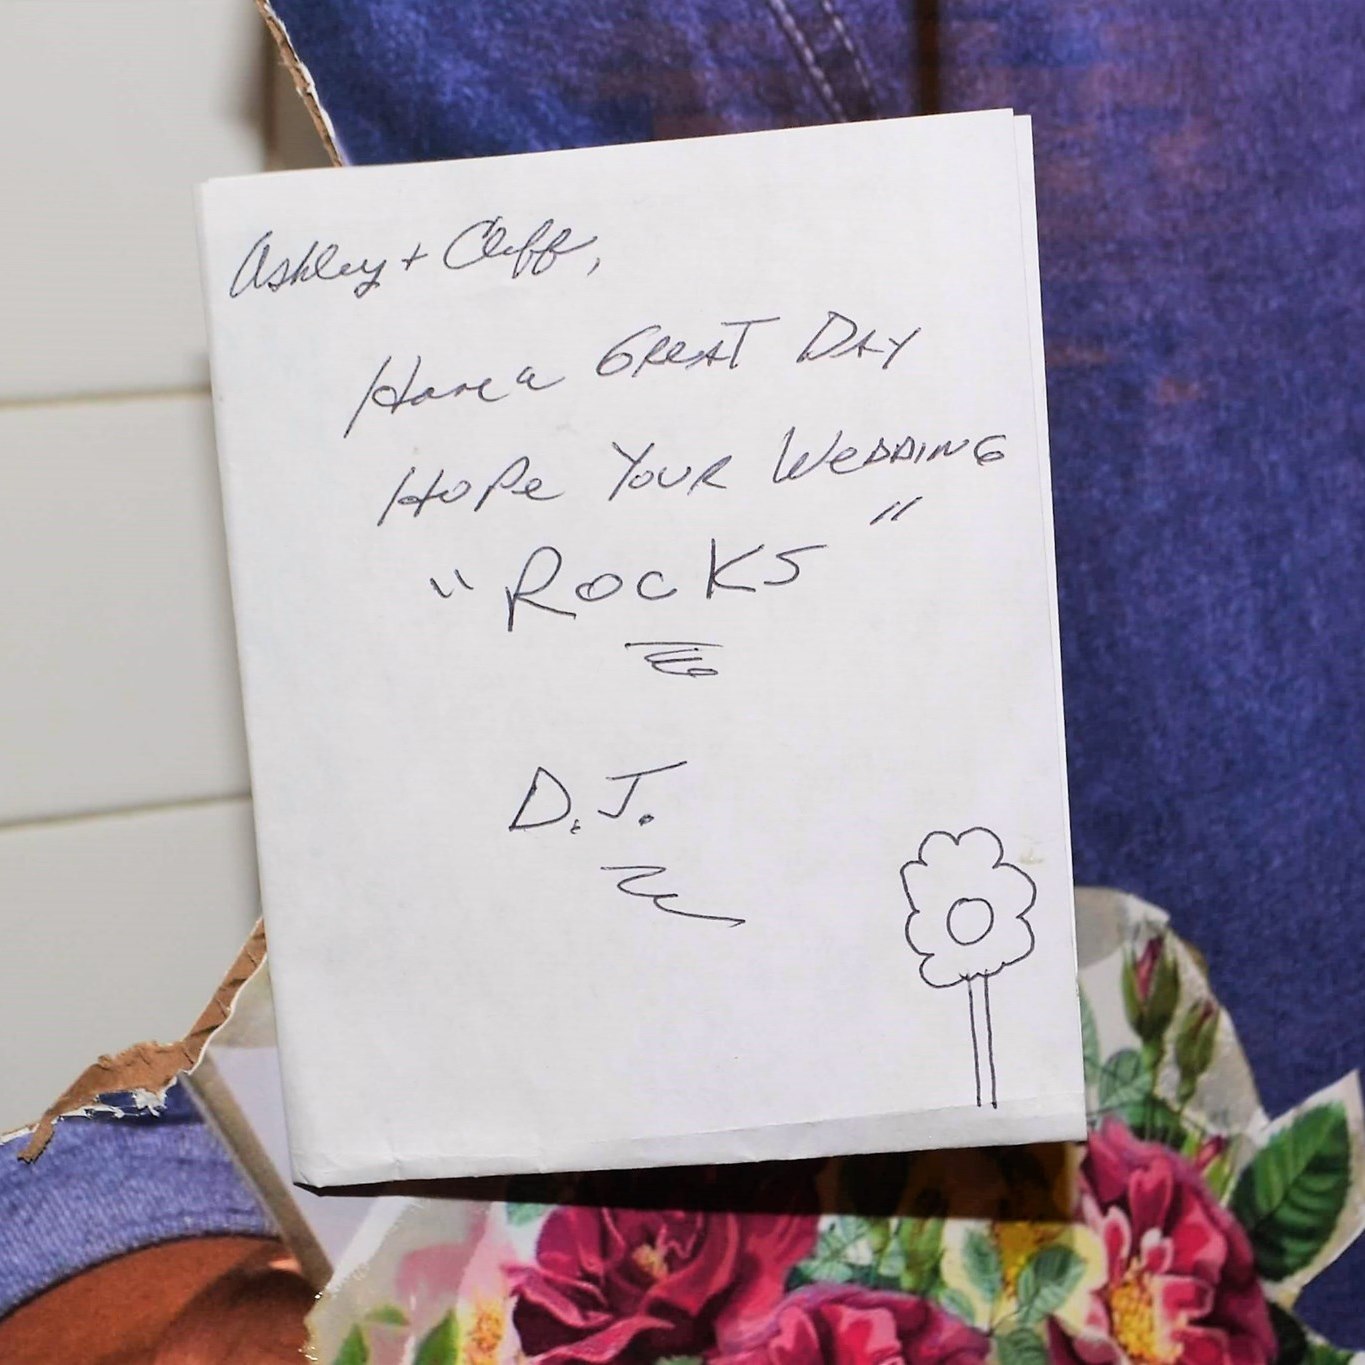 Ashley + Cliff,
Have a GReAT DAY
HoPe YOUR WeDDING
"ROCKS"
D.J.